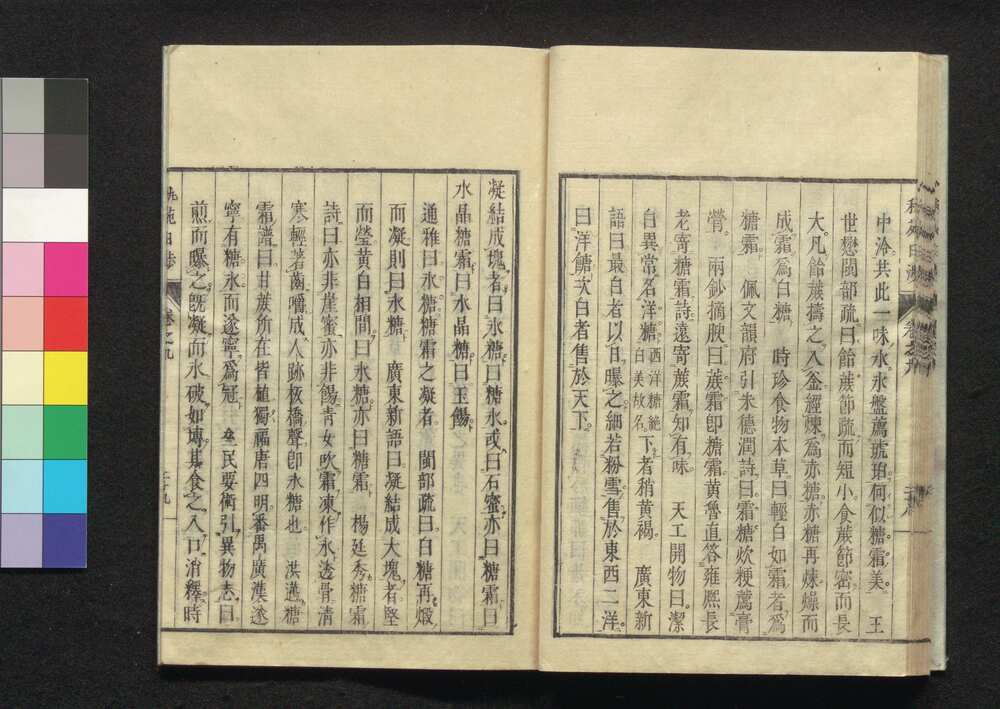 中泠共此一味水氷盤薦琥珀何似糖霜美　王
世懋閩部疏曰飴蔗節疏而短小食蔗節密而長
大凡飴蔗擣之入釜經煉為赤糖赤糖再煉燥而
成霜為白糖　時珍食物本草曰輕白如霜者為
糖霜　佩文韻府引朱德潤詩曰霜糖炊粳薦膏
膋　雨鈔摘腴曰蔗霜卽糖霜黃魯直答雍熙長
老寄糖霜詩遠寄蔗霜知有味　天工開物曰潔
白異常名洋糖西洋糖絶白美故名下者稍黃褐　廣東新
語曰最白者以日曝之細若粉雪售於東西二洋
曰洋餹次白者售於天下
凝結成塊者曰氷糖曰糖氷或曰石蜜亦曰糖霜曰
水晶糖霜曰水晶糖曰玉餳
通雅曰氷糖糖霜之凝者　閩部疏曰白糖再煅
而凝則曰氷糖　廣東新語曰凝結成大塊者堅
而瑩黃白相間曰氷糖亦曰糖霜　楊廷秀糖霜
詩曰亦非崖蜜亦非餳青女吹霜凍作氷透骨清
寒輕著齒嚼成人跡板橋聲卽氷糖也　洪邁糖
霜譜曰甘蔗所在皆植獨福唐四明番禺廣漢遂
寧有糖氷而遂寧為冠　
民要術引異物志曰
煎而曝之旣凝而氷破如塼其食之入口消釋時
卷之九